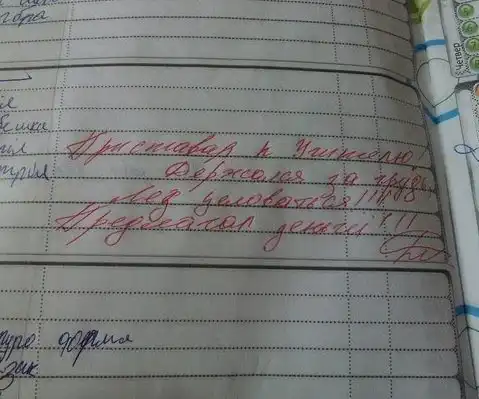 гора
Четвер
Приставал к Учителю,
Держался за грудь,
Лез целоваться!!!
Предлагал деньги!!!
форма
зык